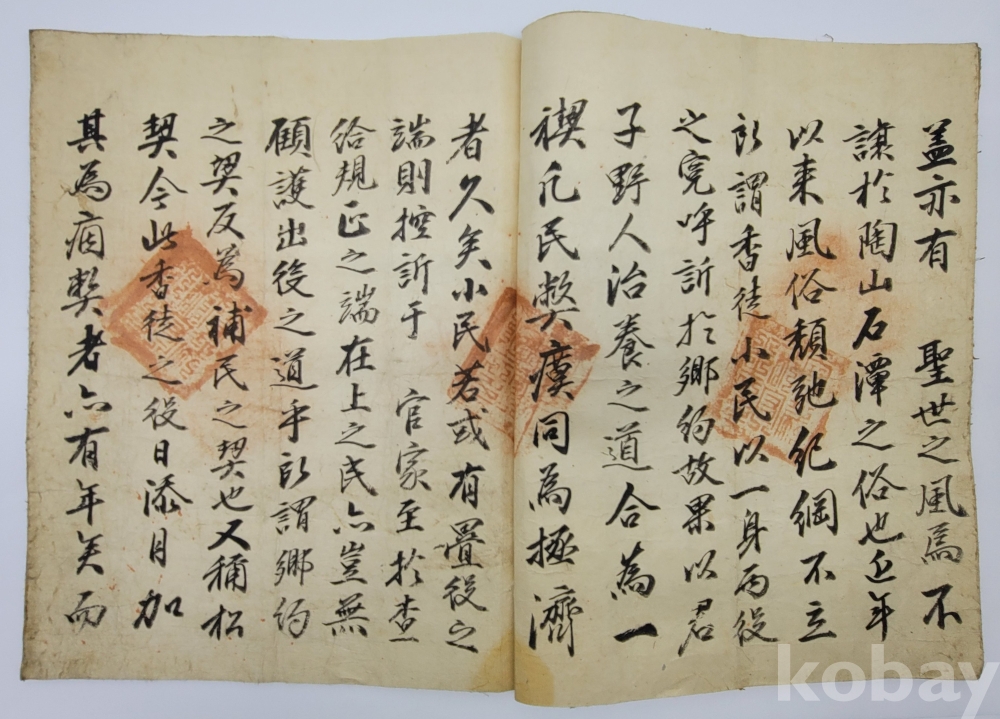 盖亦有 聖世之風焉不
讓於陶山石潭之俗也近年
以来風俗頹弛紀綱不立
所謂香徒小民以一身两役
之寃呼訴於鄉約故果以君
子野人治養之道合為一
禊凡民弊瘼同為拯濟
者久矣小民若或有疊役之
端則控訴于 官家至於查
給規正之端在上之民亦豈無
顧護出役之道乎所謂鄉約
之契反為補民之契也又稱松
契今此香徒之役日添月加
其為痼弊者亦有年矣而
kobay